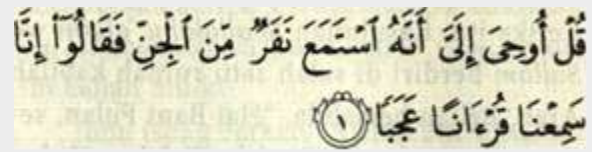 قُلْ أُوحِىَ إِلَىَّ أَنَّهُ ٱسْتَمَعَ نَفَرٌ مِّنَ ٱلْجِنِّ فَقَالُوٓا۟ إِنَّا
سَمِعْنَا قُرْءَانًا عَجَبًا ١